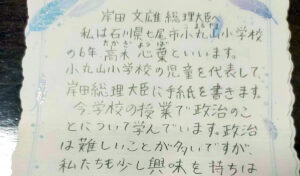 岸田文雄総理大臣へ
私は石川県七尾市小丸山小学校
の6年高木心葉といいます。
小丸山小学校の児童を代表して、
岸田総理大臣に手紙を書きます。
今学校の授業で政治のこ
とについて学んでいます。政治
は難しいことが多いですが、
私たちも少し興味を持ちは